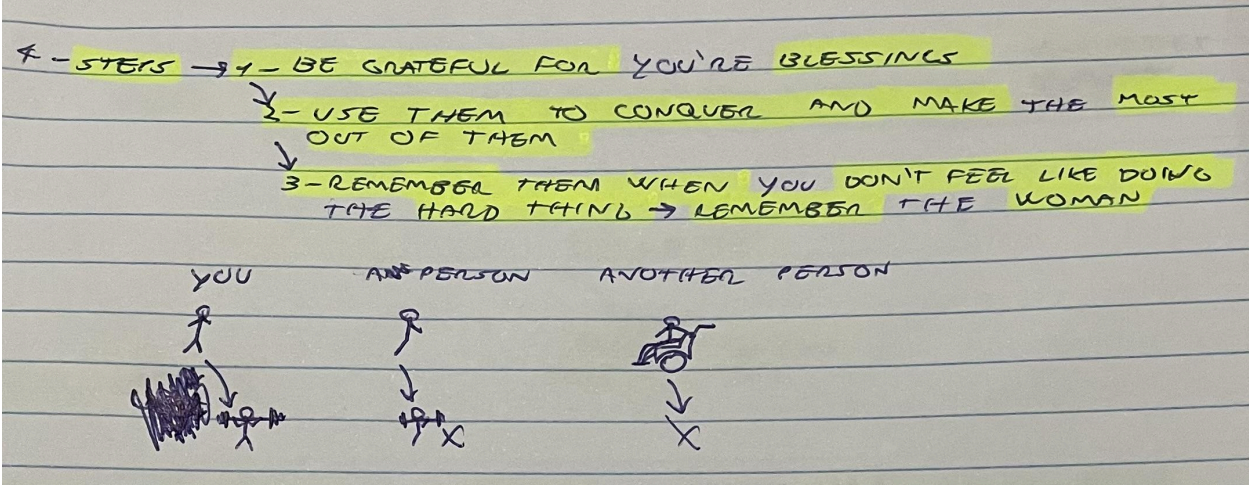 4 - STEPS → 1 - BE GRATEFUL FOR YOU'RE BLESSINGS
2 - USE THEM TO CONQUER AND MAKE THE MOST
OUT OF THEM
3 - REMEMBER THEM WHEN YOU DON'T FEEL LIKE DOING
THE HARD THING → REMEMBER THE WOMAN
YOU PERSON ANOTHER PERSON
X X